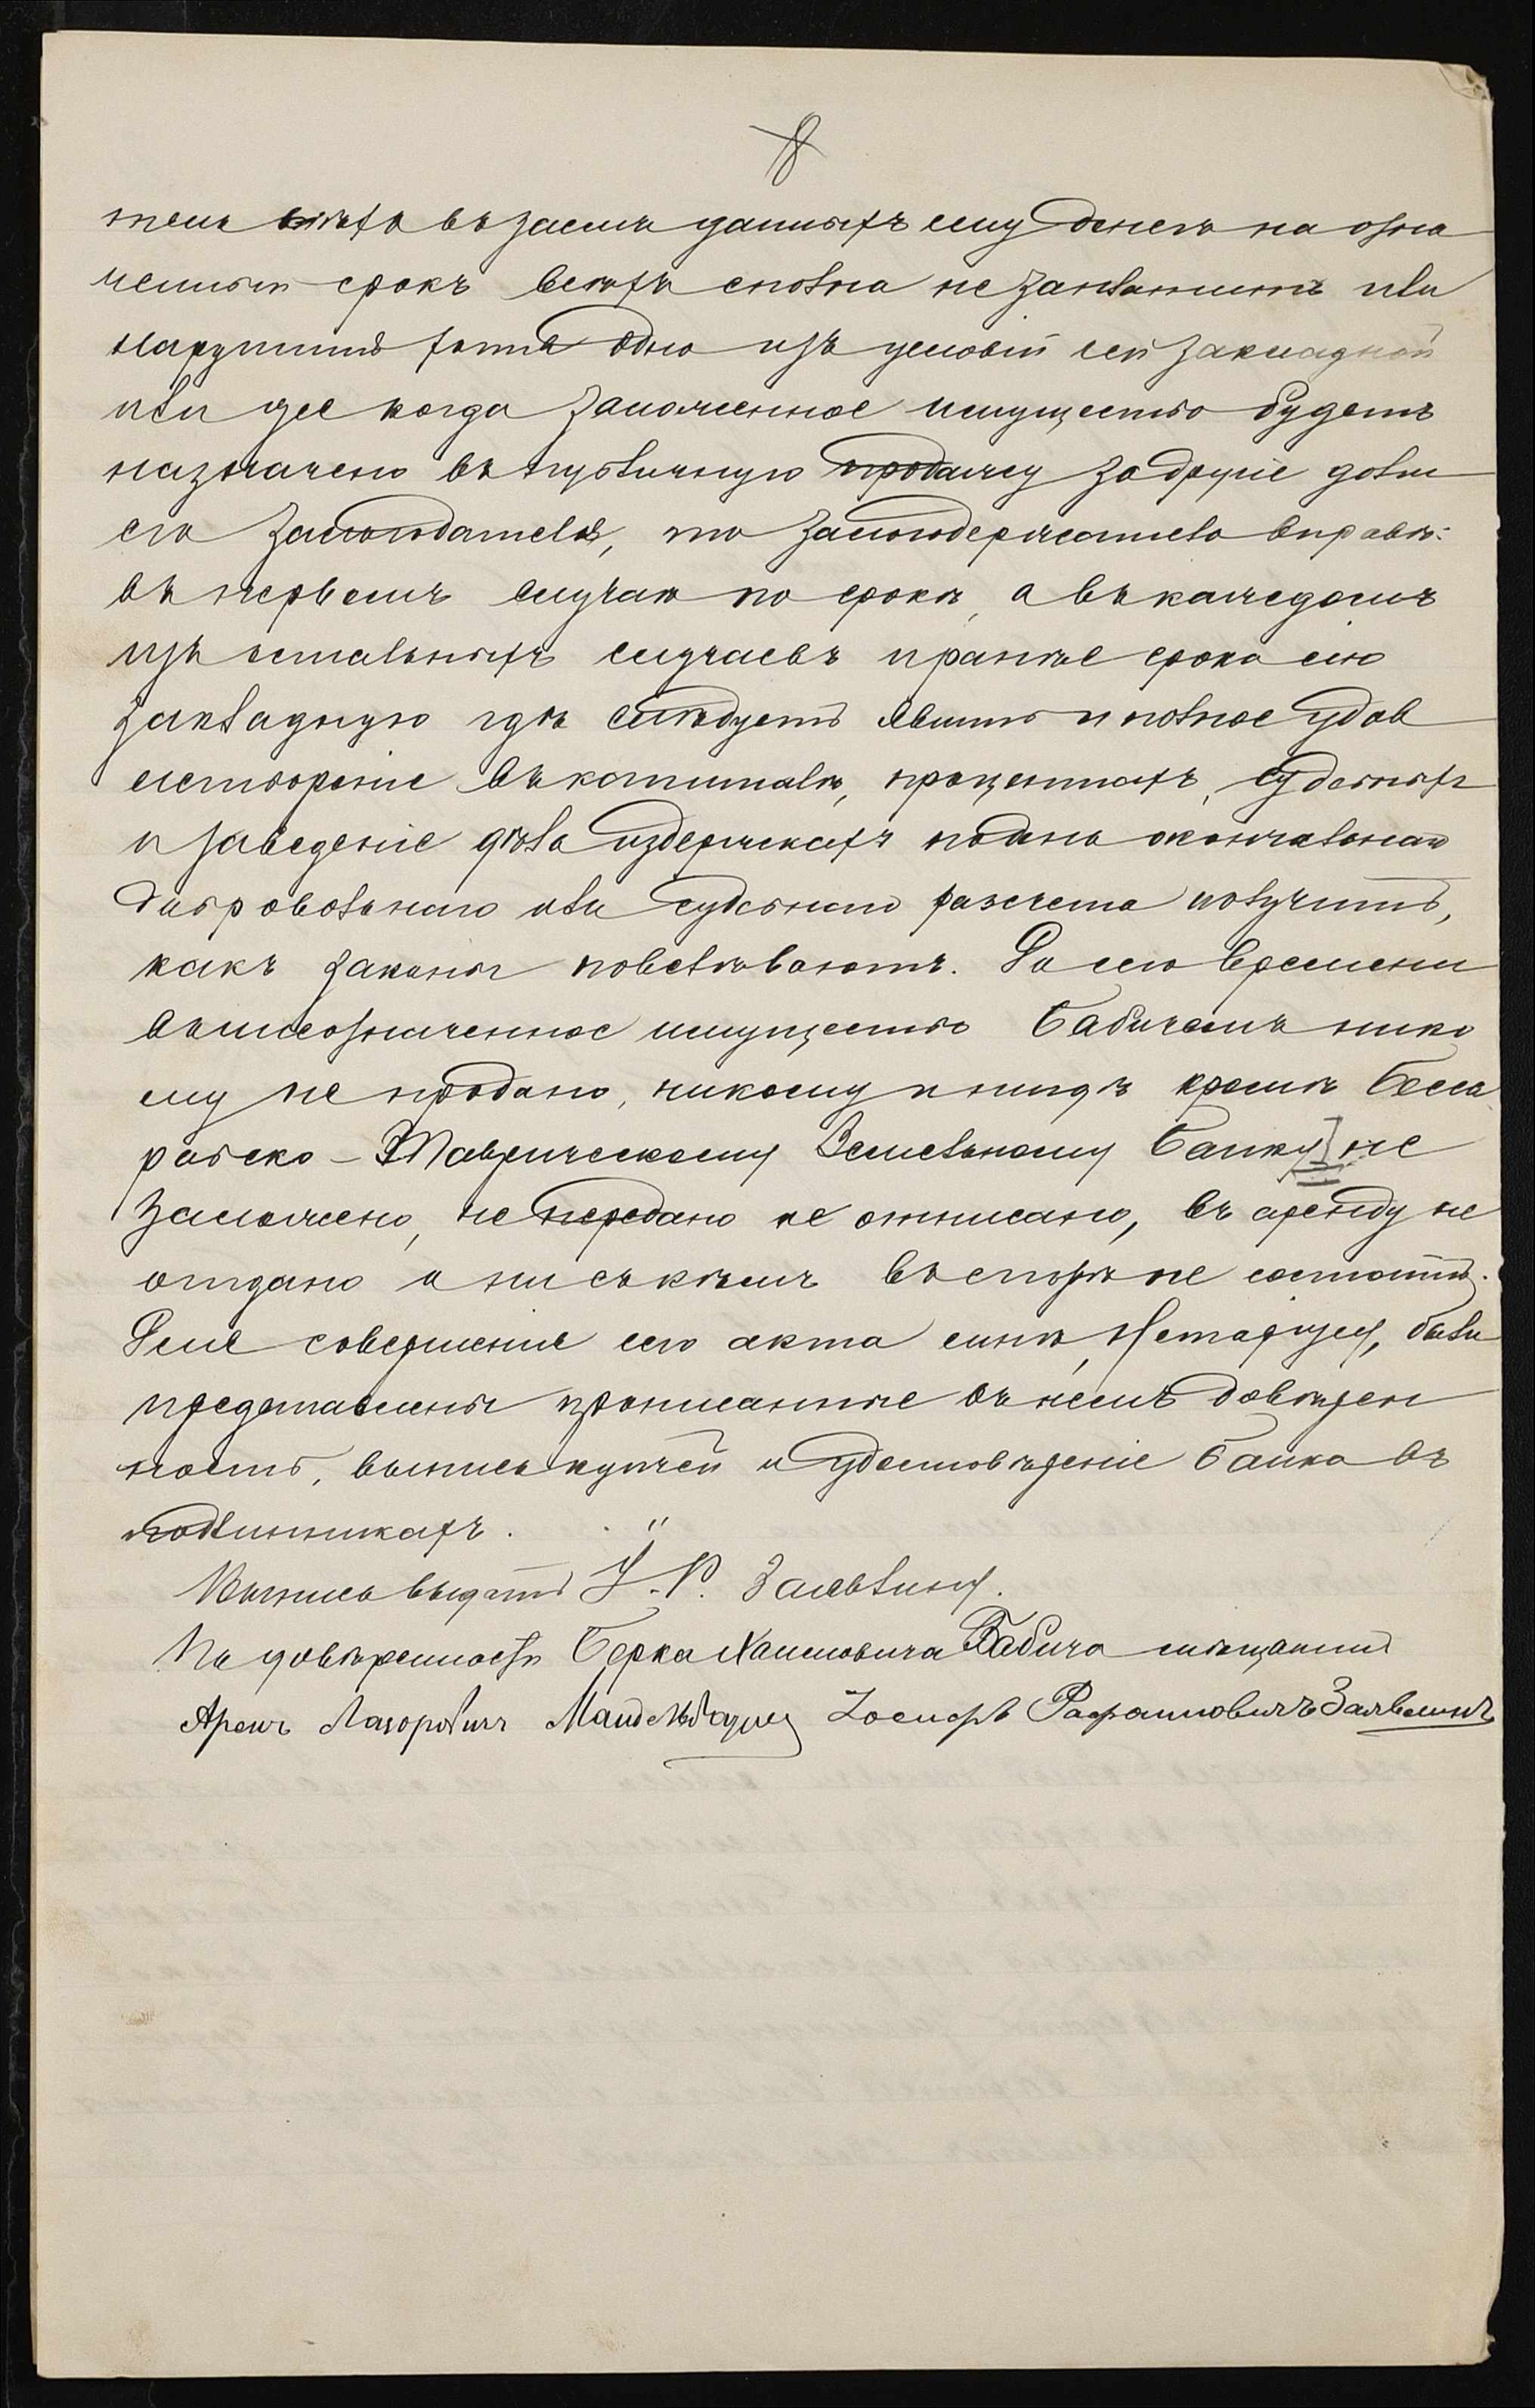 8
тель всѣхъ въ заемъ данныхъ ему денегъ на озна
ченный срокъ всѣхъ сполна не заплатитъ или
нарушитъ хотя одно изъ условій сей закладной
или же когда заложенное имущество будетъ
назначено въ публичную продажу за другіе долги
его залогодателя, то залогодержатель вправѣ:
въ первомъ случаѣ по срокѣ, а въ каждомъ
изъ остальныхъ случаевъ и ранѣе срока сію
закладную гдѣ слѣдуетъ явить и полное удов
летвореніе въ капиталѣ, процентахъ, судебныхъ
и заведеніе дѣла издержкахъ по день окончательнаго
добровольнаго или судебнаго разсчета получить,
какъ законы повелѣваютъ. До сего времени
вышеозначенное имущество Бабичемъ нико
му не продано, никому и нигдѣ кромѣ Бесса
рабско-Таврическому Земельному Банку не
заложено, не передано не отписано, въ аренду не
отдано и ни съ кѣмъ въ спорѣ не состоитъ.
Для совершенія сего акта мнѣ, Нотаріусу, были
представлены прописанные въ немъ довѣрен
ность, выпись купчей и удостовѣреніе Банка въ
подлинникахъ.
Выпись выдать І. Р. Залевскому.
По довѣренности Берка Хаимовича Бабича мѣщанинъ
Аронъ Лазоровичъ Мандельбаумъ Іосифъ Рафаиловичъ